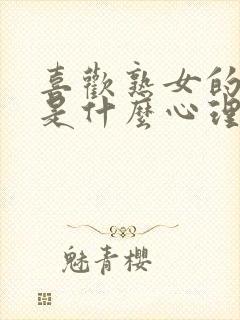 喜歡熟女的
是什麼心理
魅青櫻